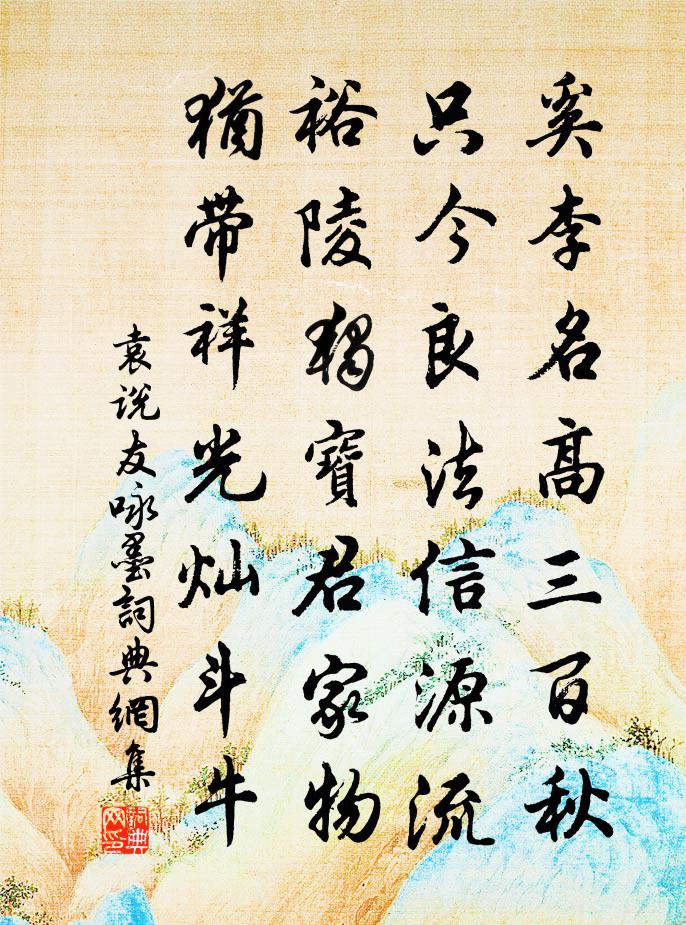 奚李名高三百秋
只今良法信源流
裕陵独寶君家物
猶带祥光灿斗牛
袁说友咏墨詞典網集
詞典網印